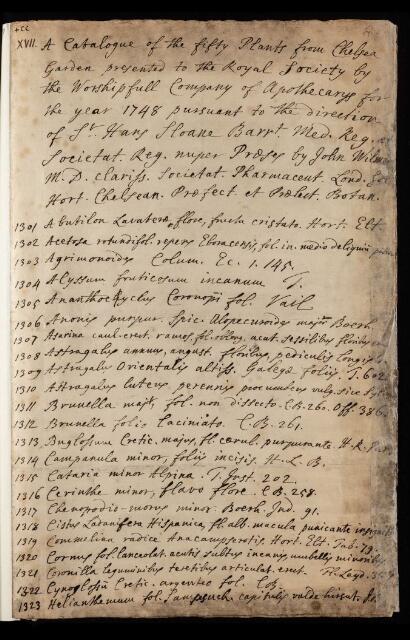 XVII. A Catalogue of the fifty Plants from Chelsea
Garden presented to the Royal Society by
the Worshipfull Company of Apothecarys for
the year 1748 pursuant to the direction
of Sr. Hans Sloane Barrt. Med. Reg. et
Societat. Reg. nuper Præses by John Wilmer
M. D. clariss. Societat. Pharmaceut. Lond.
Hort. Chelsean. Præfect et Prælect. Botan.
1301 Abutilon Lavateræ flore, fructu cristato. Hort. Elt.
1302 Acetosa rotundifol. repens Eboracensis, fol. in medio deliquium
1303 Agrimonoides Colum. Ec. 1. 145.
1304 Alyssum fruticosum incanum T.
1305 Ananthocyclus Coronopi fol. Vail
1306 Anonis purpur. spic. Alopecuroides majr. Boerh
1307 Asarina caul. erect. ramos. fl. oblong. acut. sessilibus floribus
1308 Astragalus annuus, angust. floribus, pediculis longis
1309 Astragalus Orientalis altiss. Galegæ foliis. T. 602
1310 Astragalus luteus perennis procumbens vulg. sive
1311 Brunella majr. fol. non dissecto. C.B. 260. Off. 386
1312 Brunella folio laciniato. C.B. 261.
1313 Buglossum Cretic. majus, fl. cærul. purpurante. H.R.
1314 Campanula minor, foliis incisis. H. L. B.
1315 Cataria minor Alpina. T. Inst. 202.
1316 Cerinthe minor, flavo flore. C.B. 258.
1317 Chenopodio-morus minor. Boerh. Ind. 91.
1318 Cistus Ladanifera Hispanica, fl. alb. macula punicante
1319 Commelina radice Anacampserotis. Hort. Elt. Tab. 79.
1320 Cornus fol. lanceolat. acutis subtus incanis, umbellis minoribus
1321 Coronilla leguminibus teretibus articulat. erect. H. Leyd.
1322 Cynoglossum Cretic. argenteo fol. C.B.
1323 Helianthemum fol. Sampsuchi capitulis valde hirsut.